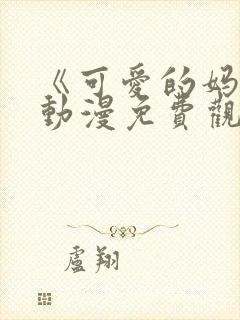 《可愛的妈
動漫免費觀
盧翔